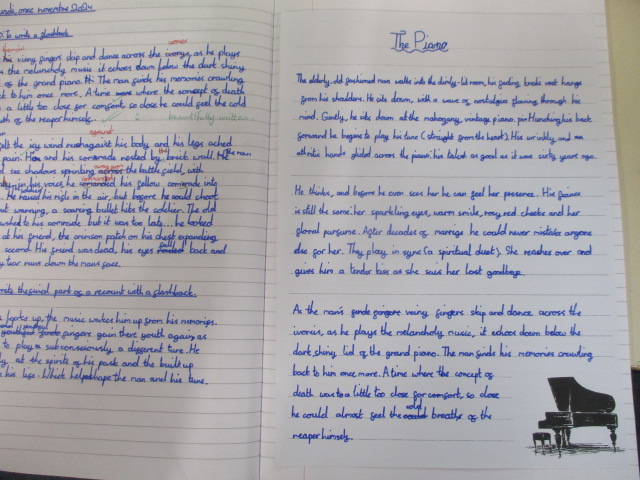 once novembre 2024
to write a flashback
his veiny fingers skip and dance across the ivories, as he plays
the melancholy music it echoes down below the dark shiny
of the grand piano. The man finds his memories crawling
back to him once more. A time where the concept of death
a little too close for comfort, so close he could feel the cold
of the reaper himself.
beautifully written
against
felt the icy wind rush against his body and his legs ached
pain. and his comrade nested by the brick wall. the man
see shadows sprinting across the battlefield, with
in his voice, he his fellow comrade into
He raised his rifle in the air, but before he could shoot
warning, a soaring bullet hits the soldier. The old
to his comrade but it was too late... he looked
at his friend, the crimson patch on his chest expanding
second. His friend was dead, his eyes back and
tear runs down the mans face.
the final part of a recount with a flashback.
looks up, the music wakes him up from his memories.
fingers gain there youth again as
to play subconsciously, a different tune. He
at the spirits of his past and the built up
his life. Which helped shape the man and his tune.
The Piano
The elderly, old fashioned man walks into the dimly-lit room, his fading, tweed vest hangs
from his shoulders. He sits down, with a wave of nostalgia flowing through his
mind. Gently, he sits down at the mahogany, vintage piano. Hunching his back
forward he begins to play his tune (straight from the heart). His wrinkly and
athritic hands glided across the piano: his talent as good as it were sixty years ago.
He thinks, and before he even sees her he can feel her presence. His fiancé
is still the same: her sparkling eyes, warm smile, rosy red cheeks and her
floral perfume. After decades of marrige he could never mistake anyone
else for her. They play in sync (a spiritual duet). She reaches over and
gives him a tender kiss as she says her last goodbye.
As the man's veiny fingers skip and dance across the
ivories, as he plays the melancholy music, it echoes down below the
dark, shiny, lid of the grand piano. The man finds his memories crawling
back to him once more. A time where the concept of
death was to a little too close for comfort, so close
he could almost feel the cold breathe of the
reaper himself.